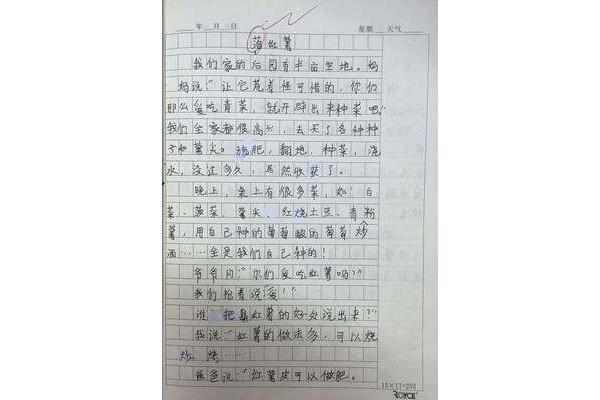 年 月 日 星期 天气
落红薯
我们家的后园有半亩空地。妈
妈说:“让它荒着怪可惜的,你们
那么爱吃青菜,就开辟出来种菜吧。”
我们全家都很高兴,去买了各种种
子和薯尖。施肥,翻地,种菜,浇
水,没过多久,居然收获了。
晚上,桌上有很多菜,如:白
菜、菠菜、薯尖、红烧土豆、青粉
薯,用自己种的葡萄酿的葡萄
酒……全是我们自己种的!
爷爷问:“你们爱吃红薯吗?”
我们抢着说“爱!”
谁 把红薯的好处说出来?”
我说:“红薯的做法多,可以烧
炒 烤……
爸爸说:“红薯皮可以做肥。
15×17=255